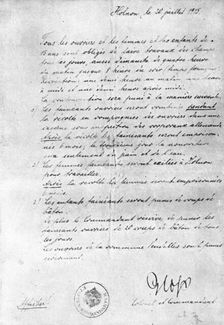 Holnon, le 20 juillet 1915.
Tous les ouvriers et les femmes et les enfants de
15 ans sont obligés de faire travaux des champs
tous les jours, aussi dimanche de quatre heures
du matin jusque 8 heures du soir, temps français.
Récréation: une demi heure au matin, une heure
à midi et une demi heure après midi.
La contravention sera punie à la manière suivante:
1) Les fainéants ouvriers seront pendant
la récolte en compagnies des ouvriers dans une
caserne sous inspection de caporaux allemands.
Après la récolte les fainéants seront emprisonnés
6 mois, le troisième jour la nourriture
sera seulement du pain et de l'eau.
2) Les femmes fainéantes seront exilées à Holnon
pour travailler.
Après la récolte les femmes seront emprisonnées
6 mois.
3) Les enfants fainéants seront punis de coups de
bâton.
De plus le commandant réserve de punir les
fainéants ouvriers de 20 coups de bâton de tous
les jours.
Les ouvriers de la commune Vendelles sont punis
sévèrement.
Gloss
Colonel et Commandant